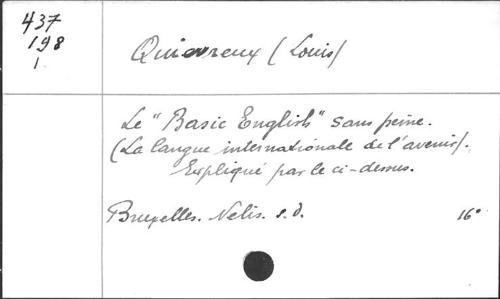 437
198
1.
Quiévreux (Louis)
Le "Basic English" sans peine.
(La langue internationale de l'avenir).
Expliqué par le ci-dessus.
Bruxelles. Nelis. s.d. 16°